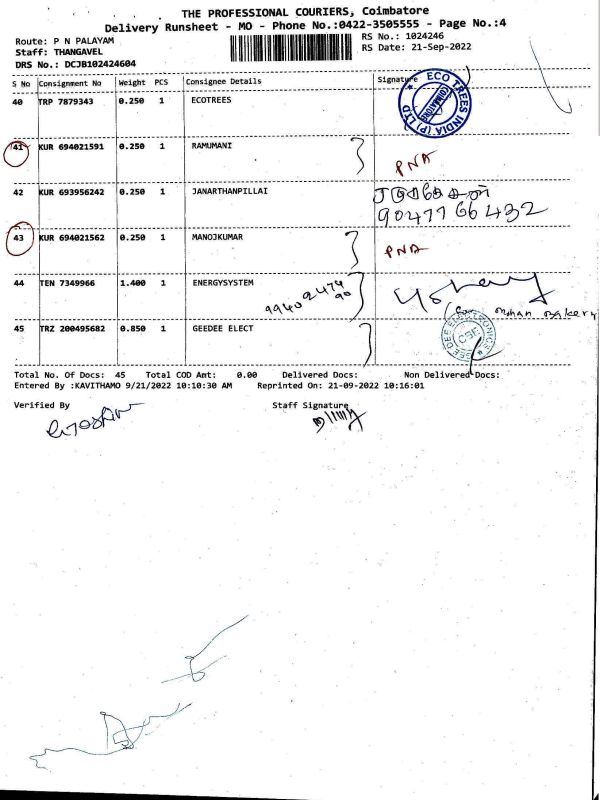 THE PROFESSIONAL COURIERS, Coimbatore
Delivery Runsheet - MO - Phone No.:0422-3505555 - Page No.:4
Route: P N PALAYAM
RS No.: 1024246
Staff: THANGAVEL
RS Date: 21-Sep-2022
DRS No.: DCJB102424604
S No Consignment No Weight PCS Consignee Details Signature
40 TRP 7879343 0.250 1 ECOTREES
ECO TREES INDIA (P) LTD COIMBATORE
41 KUR 694021591 0.250 1 RAMUMANI
PNA
42 KUR 693956242 0.250 1 JANARTHANPILLAI
9047766432
43 KUR 694021562 0.250 1 MANOJKUMAR
PNA
44 TEN 7349966 1.400 1 ENERGYSYSTEM
45 TRZ 200495682 0.850 1 GEEDEE ELECT
CBE
Total No. Of Docs: 45 Total COD Amt: 0.00 Delivered Docs: Non Delivered Docs:
Entered By :KAVITHAMO 9/21/2022 10:10:30 AM Reprinted On: 21-09-2022 10:16:01
Verified By Staff Signature